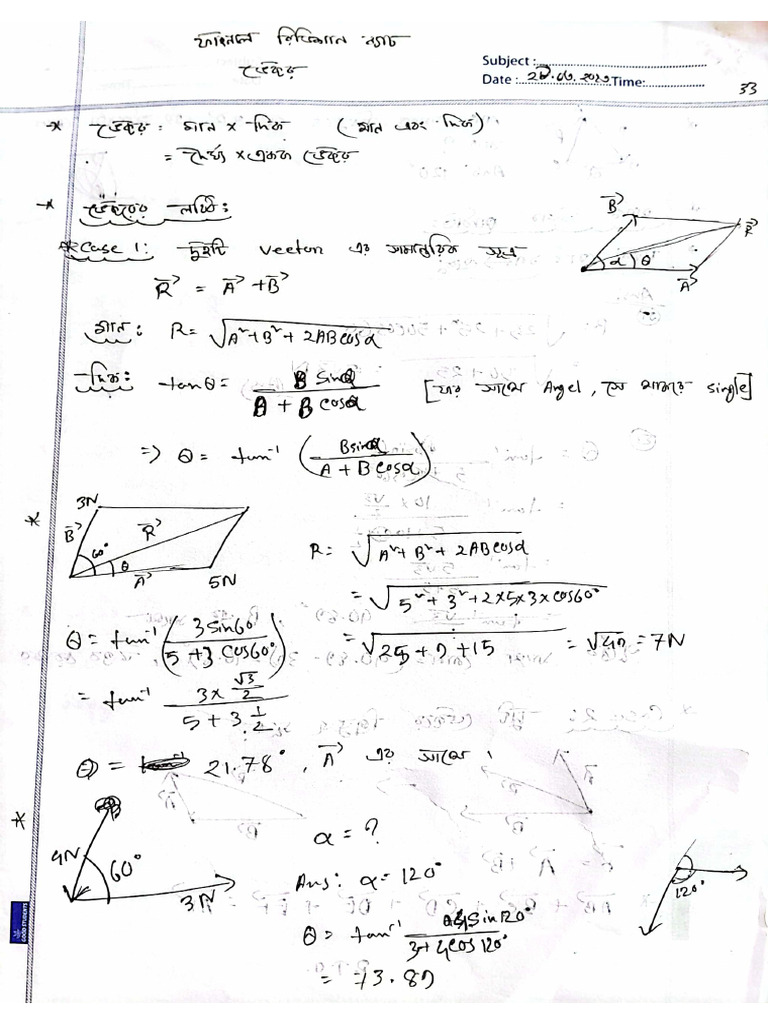 ফাইনাল রিভিশন ন্যাচ
ভেক্টর
Subject :
Date : 28.06.2023 Time:
33
* ভেক্টর : মান × দিক (মান এবং দিক)
= দৈর্ঘ্য × একক ভেক্টর
* ভেক্টরের লব্ধি :
Case 1: দুইটি Vector এর সামান্তরিক সূত্র
B⃗ R⃗ α θ A⃗
R⃗ = A⃗ + B⃗
মান: R = √(A² + B² + 2AB cosα)
দিক: tanθ = B sinα / (A + B cosα) [যার সাথে Angel, সে থাকবে single]
⇒ θ = tan⁻¹ (B sinα / (A + B cosα))
* 3N B⃗ 60° R⃗ θ A⃗ 5N
R = √(A² + B² + 2AB cosα)
= √(5² + 3² + 2×5×3×cos60°)
= √(25 + 9 + 15) = √49 = 7N
θ = tan⁻¹ (3 sin60° / (5 + 3 cos60°))
= tan⁻¹ (3 × √3/2) / (5 + 3·1/2)
θ = 21.78°, A⃗ এর সাথে।
* 4N 60° 3N
α = ?
Ans: α = 120°
120°
θ = tan⁻¹ 4 sin120° / (3 + 4 cos120°)
= 73.89
GOOD STUDENTS